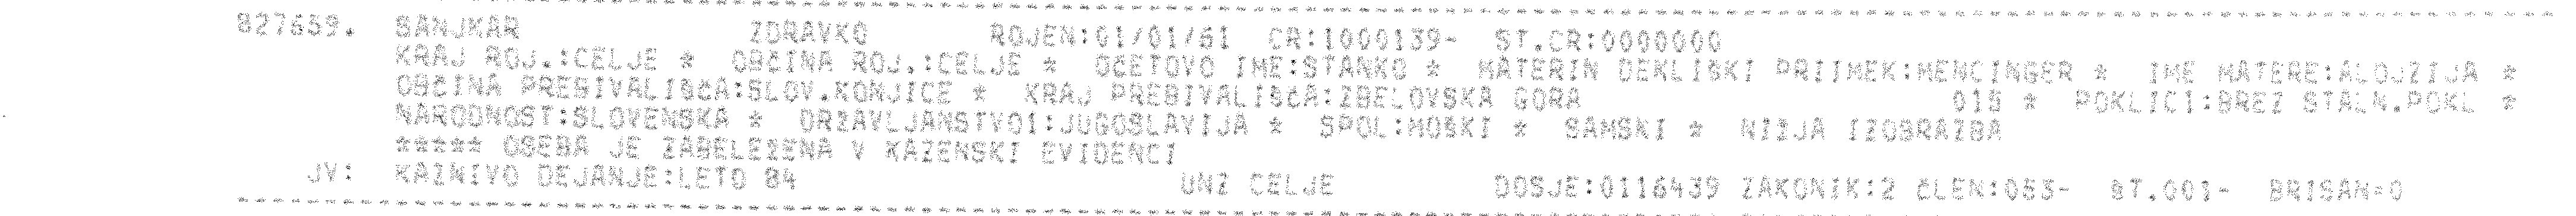 827659. SANJKAR ZDRAVKO ROJEN:01/01/61 CR:1000139- ST.CR:0000000
KRAJ ROJ.:CELJE * OBČINA ROJ.:CELJE * OČETOVO IME:STANKO * MATERIN DEKLIŠKI PRIIMEK:MENCINGER * IME MATERE:ALOJZIJA *
OBČINA PREBIVALIŠČA:SLOV.KONJICE * KRAJ PREBIVALIŠČA:ZBELOVSKA GORA 015 * POKLIC1:BREZ STALN.POKL *
NARODNOST:SLOVENSKA * DRŽAVLJANSTVO1:JUGOSLAVIJA * SPOL:MOŠKI * SAMSKI * NIŽJA IZOBRAZBA
***** OSEBA JE ZABELEŽENA V KAZENSKI EVIDENCI
JV: KAZNIVO DEJANJE:LETO 84 UNZ CELJE DOSJE:0116439 ZAKONIK:2 ČLEN:053- ST.001- BRISAN=0